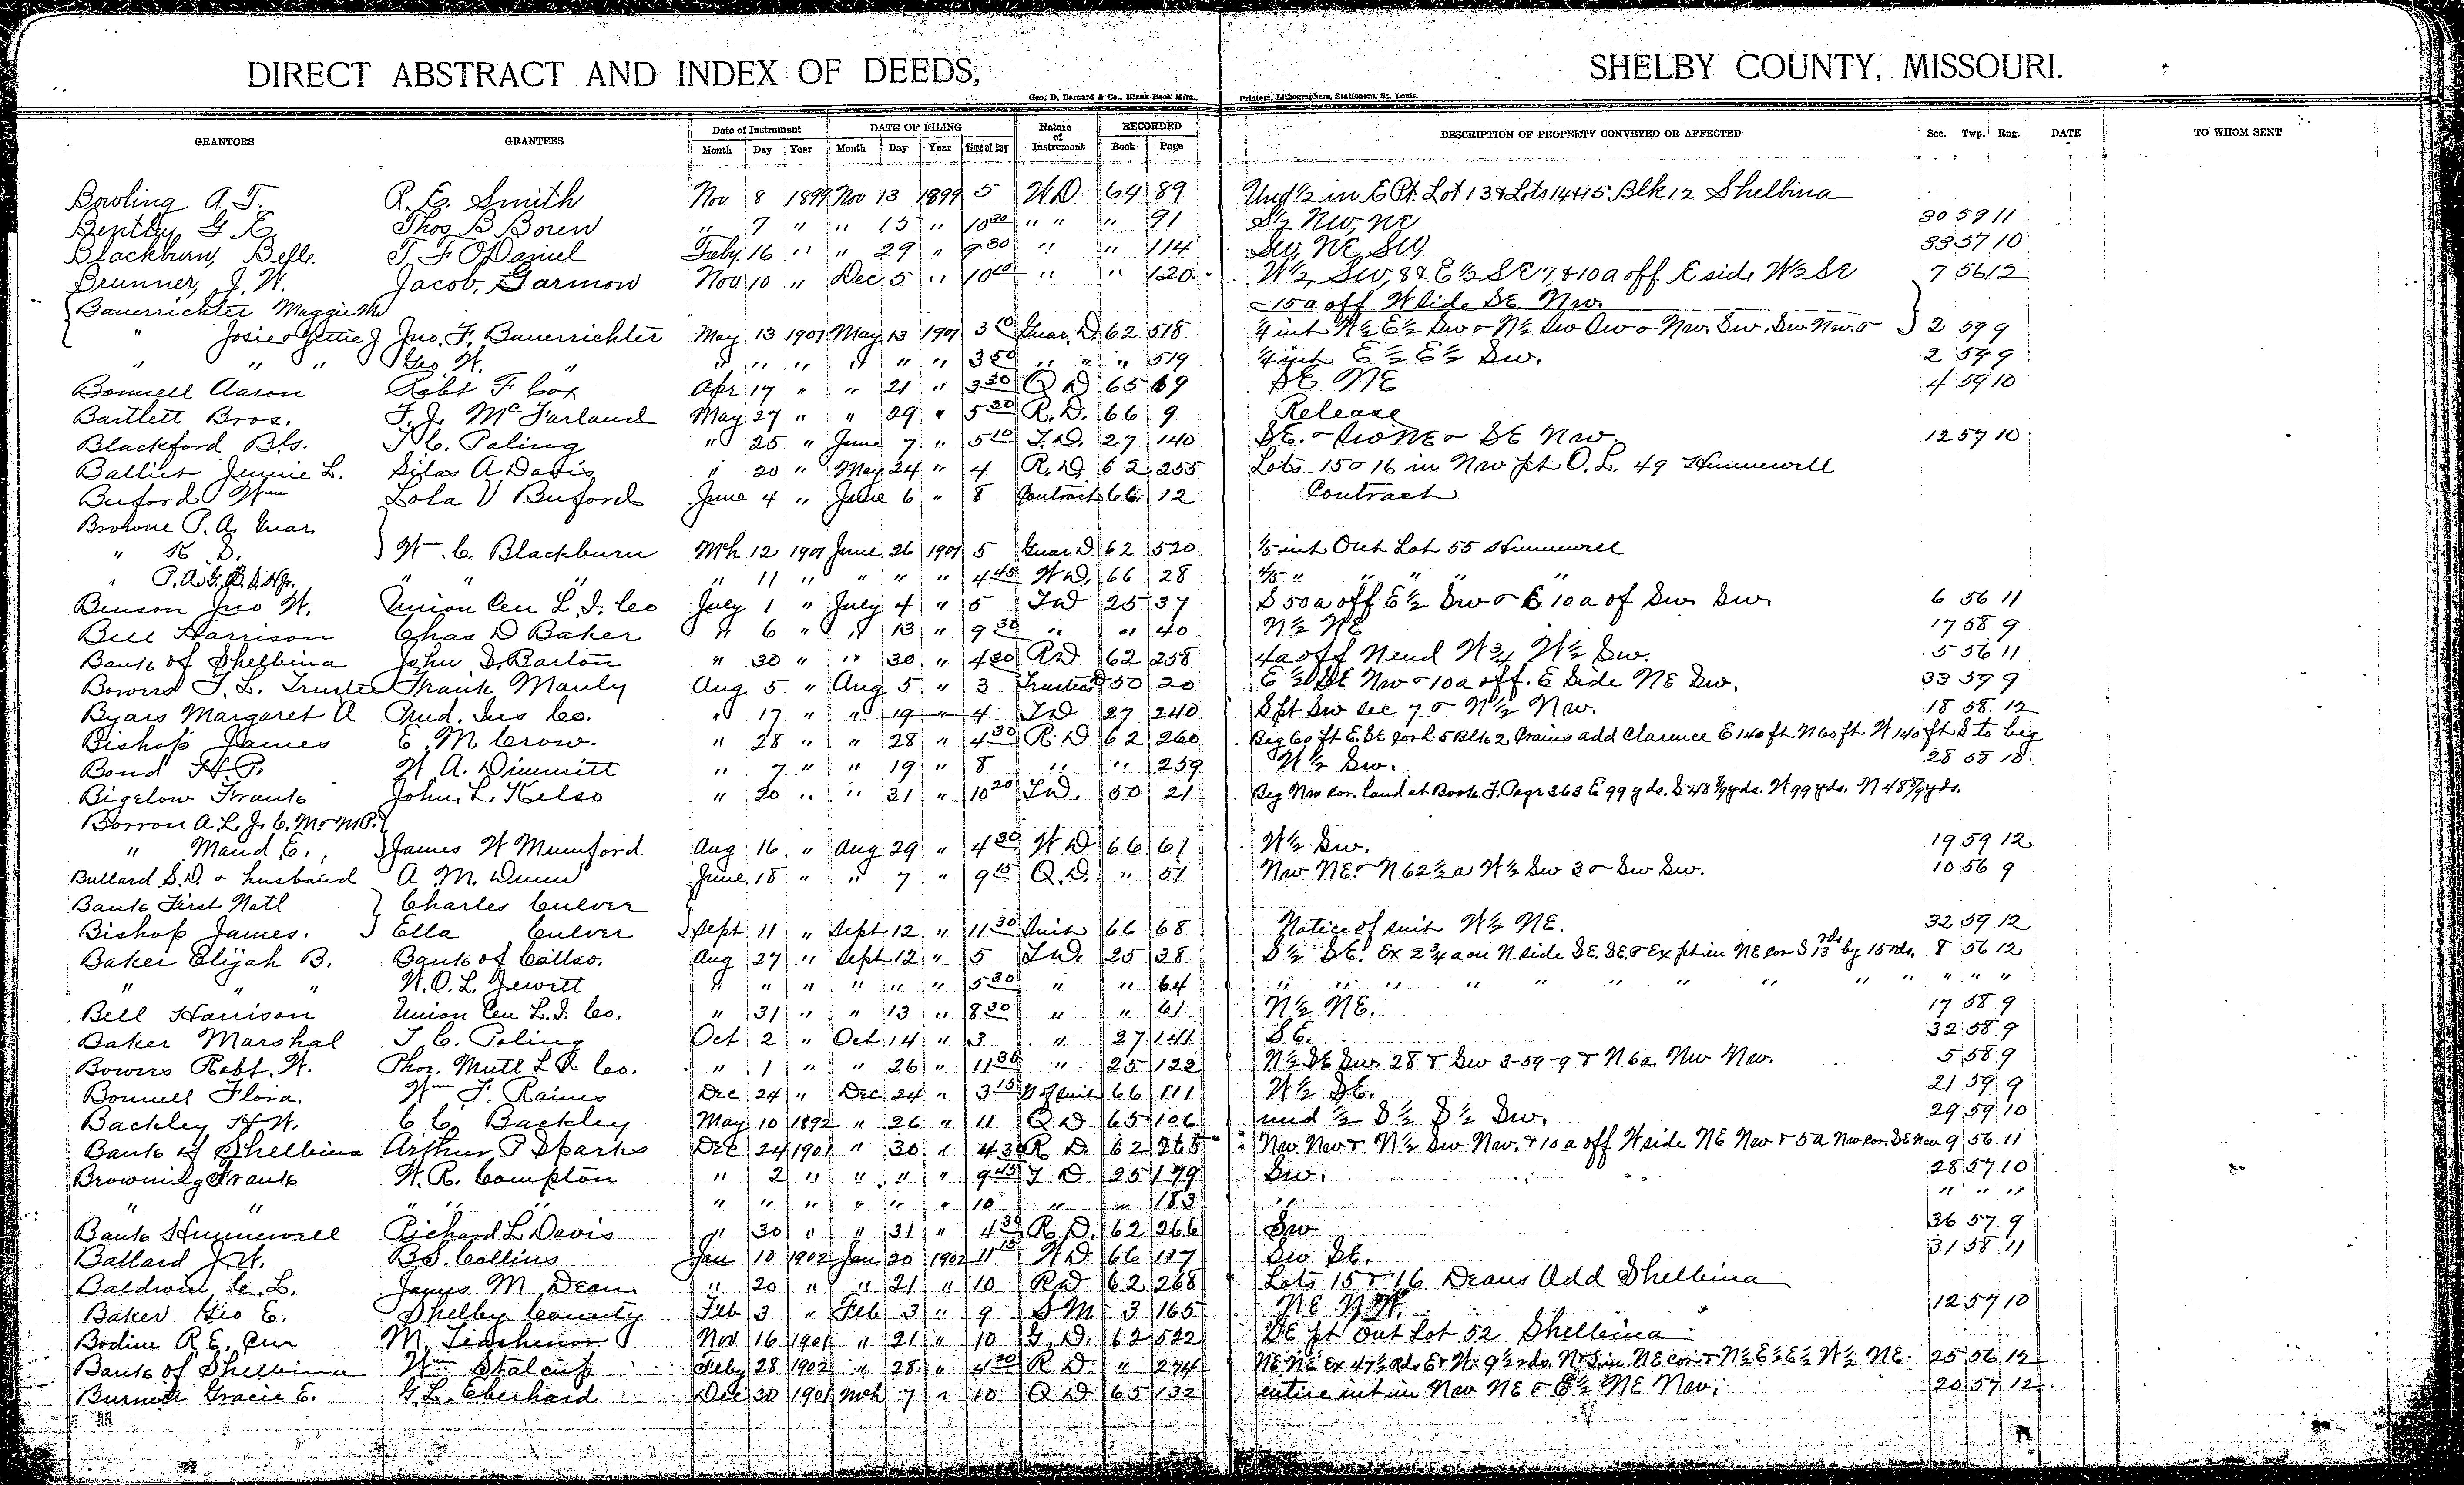 DIRECT ABSTRACT AND INDEX OF DEEDS, SHELBY COUNTY, MISSOURI.
Geo. D. Barnard & Co., Blank Book Mfrs., Printers, Lithographers, Stationers, St. Louis.
GRANTORS GRANTEES Date of Instrument DATE OF FILING Nature of Instrument RECORDED DESCRIPTION OF PROPERTY CONVEYED OR AFFECTED Sec. Twp. Rng. DATE TO WHOM SENT
Month Day Year Month Day Year Time of Day Book Page
Bowling A. T. R. E. Smith Nov 8 1899 Nov 13 1899 5 W D 64 89 Und 1/2 in E Pt. Lot 13 & Lots 14 & 15 Blk 12 Shelbina
Bently G. E. Thos B Boren " 7 " " 15 " 10 30 " " " 91 S 1/2 NW, NE 30 59 11
Blackburn, Belle T. F O'Daniel Feby 16 " " 29 " 9 30 " " 114 SW, NE, SW 33 57 10
Brunner, J. W. Jacob Garmow Nov 10 " Dec 5 " 10 10 " " 120 W 1/2, SW, 8 & E 1/2 SE 7, & 10 a off E side W 1/2 SE 7 56 12
Bauerrichter Maggie M - 15 a off W side SE NW.
" Josie & Gettie J Jno. F. Bauerrichter May 13 1901 May 13 1901 3 10 Guar. D. 62 518 1/4 int W 1/2 E 1/2 Sw & N 1/2 Sw Sw & Nw. Sw. Sw Nw. & 2 59 9
" " " Geo. W. " " " " " " " 3 50 " " " 519 1/4 int E 1/2 E 1/2 Sw. 2 59 9
Bonnell Aaron Robt F Cox Apr 17 " " 21 " 3 30 Q D 65 69 SE NE 4 59 10
Bartlett Bros. F. J. McFarland May 27 " " 29 " 5 20 R. D. 66 9 Release
Blackford B.S. T. C. Poling " 25 " June 7 " 5 10 T. D. 27 140 SE. & Sw NE & SE Nw. 12 57 10
Balliet Jennie L. Silas A Davis " 20 " May 24 " 4 R. D. 62 255 Lots 15 & 16 in Nw pt O. L. 49 Hunnewell
Buford Wm Lola V Buford June 4 " June 6 " 8 Contract 66 12 Contract
Browne P. A. Guar.
" K. D. Wm. C. Blackburn Mch 12 1901 June 26 1901 5 Guar D 62 520 1/5 int Out Lot 55 Hunnewell
" " " " 11 " " " " 4 45 W D. 66 28 4/5 " " " " "
Benson Jno W. Union Cen L. I. Co July 1 " July 4 " 5 T D 25 37 S 50 a off E 1/2 Sw & E 10 a of Sw. Sw. 6 56 11
Bell Harrison Chas D Baker " 6 " " 13 " 9 30 " " 40 N 1/2 NE 17 58 9
Bank of Shelbina John D. Barton " 30 " " 30 " 4 30 R D 62 258 4 a off N end W 3/4 W 1/2 Sw. 5 56 11
Bowers T. L. Trustee Frank Manly Aug 5 " Aug 5 " 3 Trustee D 50 20 E 1/2 SE Nw & 10 a off. E Side NE Sw. 33 59 9
Byars Margaret A Prud. Ins Co. " 17 " " 19 " 4 T D 27 240 S pt Sw sec 7 & N 1/2 Nw. 18 58 12
Bishop James E. M. Crow. " 28 " " 28 " 4 30 R. D 62 260 Beg 60 ft E. SE cor L 5 Blk 2 Crains add Clarence E 140 ft N 60 ft W 140 ft S to beg
Bond H. P. W. A. Dimmitt " 7 " " 19 " 8 " " 259 W 1/2 Sw. 28 58 10
Bigelow Frank John. L. Kelso " 20 " " 31 " 10 20 T D. 50 21 Beg Nw cor. land at Book J. Page 363 E 99 yds. S 48 8/9 yds. W 99 yds. N 48 8/9 yds.
Borron A. L. J. C. M. & M P.
" Maud E. James W Mumford Aug 16 " Aug 29 " 4 30 W D 66 61 W 1/2 Sw. 19 59 12
Bullard S. D. & husband A. M. Dunn June 18 " " 7 " 9 15 Q. D. " 51 Nw NE. & N 62 1/2 a W 1/2 Sw 3 & Sw Sw. 10 56 9
Bank First Natl Charles Culver
Bishop James. Ella Culver Sept 11 " Sept 12 " 11 30 Suit 66 68 Notice of suit W 1/2 NE. 32 59 12
Baker Elijah B. Bank of Callao. Aug 27 " Sept 12 " 5 T D. 25 38 S 1/2 SE. Ex 2 3/4 a on N. side SE. SE. & Ex pt in NE cor S 13 rds by 15 rds. 8 56 12
" " " W. O. L. Jewett " " " " " " 5 30 " " 64 " " " " " " " " " " "
Bell Harrison Union Cen L. I. Co. " 31 " " 13 " 8 30 " " 61 N 1/2 NE. 17 58 9
Baker Marshal T. C. Poling Oct 2 " Oct 14 " 3 " 27 141 S E. 32 58 9
Bowers Robt. W. Phoe. Mutl L I Co. " 1 " " 26 " 11 30 " 25 122 N 1/2 SE Sw. 28 & Sw 3-59-9 & N 6 a. Nw Nw. 5 58 9
Bonnell Flora. Wm F. Raines Dec 24 " Dec 24 " 3 15 N of Suit 66 111 W 1/2 SE. 21 59 9
Backley H. W. C C. Backley May 10 1892 " 26 " 11 Q D 65 106 und 1/2 S 1/2 S 1/2 Sw. 29 59 10
Bank of Shelbina Arthur P Sparks Dec 24 1901 " 30 " 4 30 R D. 62 265 Nw Nw & N 1/2 Sw Nw. & 10 a off W side NE Nw & 5 a Nw cor. SE Nw 9 56 11
Browning Frank W. R. Compton " 2 " " " " 9 45 T D 25 179 Sw. 28 57 10
" " " " " " " " " " 10 " " 183 " " " "
Bank Hunnewell Richard L Davis " 30 " " 31 " 4 30 R. D. 62 266 Sw 36 57 9
Ballard J. W. B. S. Collins Jan 10 1902 Jan 20 1902 11 15 W D 66 117 Sw SE. 31 58 11
Baldwin C. L. James M. Dean " 20 " " 21 " 10 R D 62 268 Lots 15 & 16 Deans Add Shelbina
Baker Geo E. Shelby County Feb 3 " Feb 3 " 9 S M 3 165 NE NW. 12 57 10
Bodine R E. Cur M. Tischenor Nov 16 1901 " 21 " 10 G. D. 62 522 SE pt Out Lot 52 Shelbina
Bank of Shelbina Wm Stalcup Feby 28 1902 " 28 " 4 30 R D. " 274 NE NE Ex 47 1/2 Rds E & W x 9 1/2 rds. N & S in NE cor & N 1/2 E 1/2 E 1/2 W 1/2 NE. 25 56 12
Burnett Gracie E. G. L. Eberhard Dec 30 1901 Mch 7 " 10 Q D 65 132 entire int in Nw NE & E 1/2 NE Nw. 20 57 12